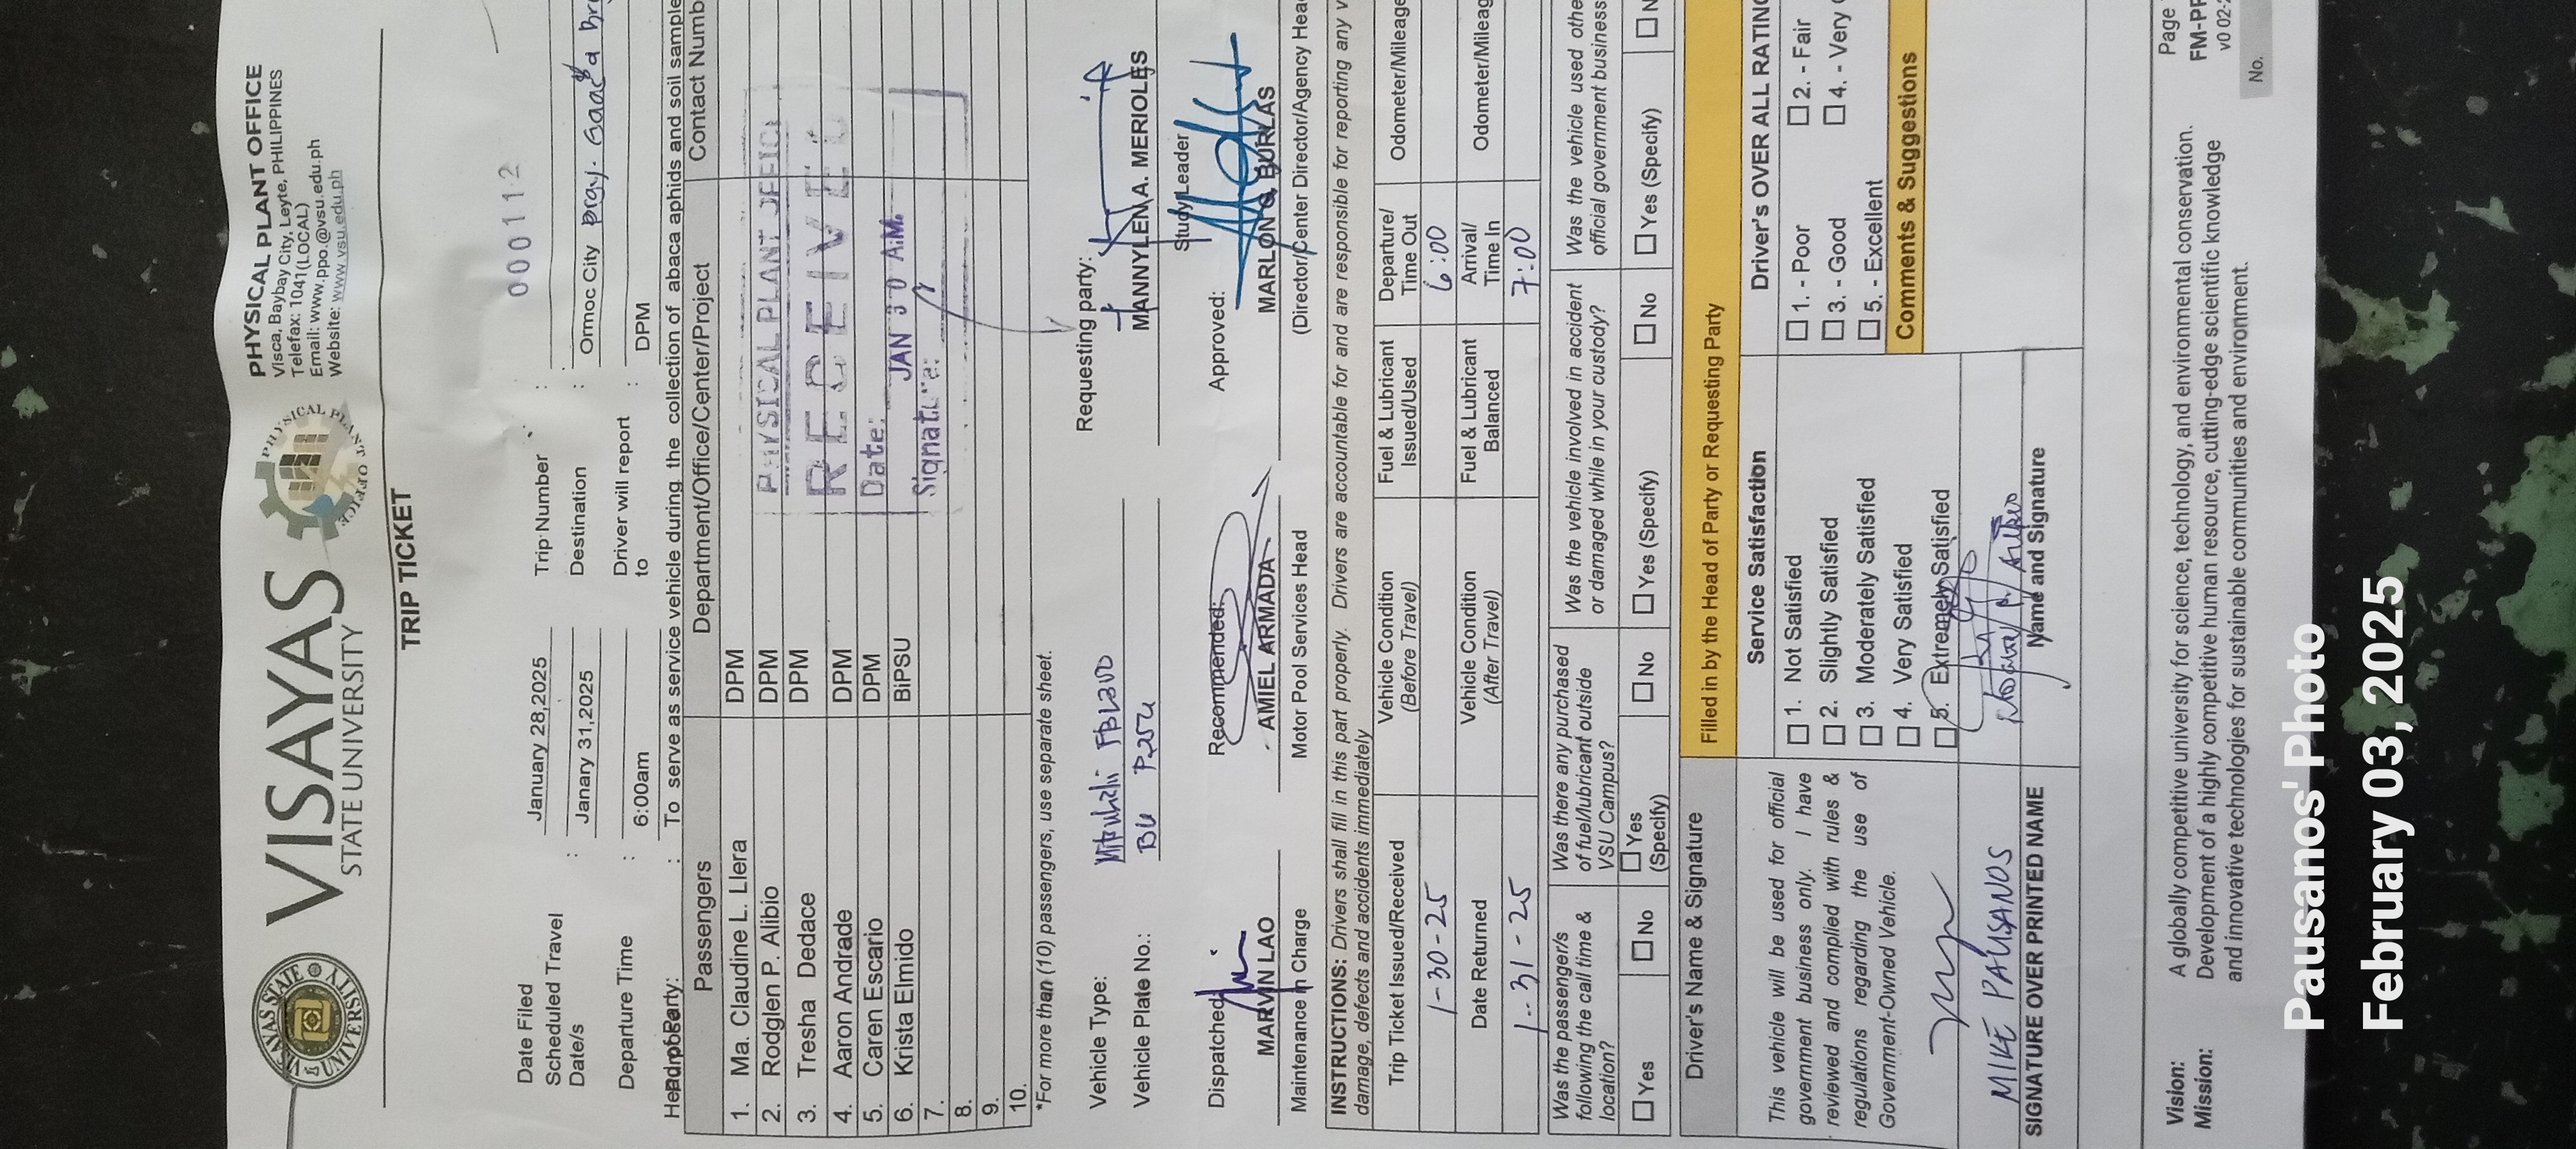 VISAYAS
STATE UNIVERSITY
PHYSICAL PLANT OFFICE
Visca, Baybay City, Leyte, PHILIPPINES
Telefax: 1041(LOCAL)
Email: www.ppo.@vsu.edu.ph
Website: www.vsu.edu.ph
TRIP TICKET
000112
Date Filed January 28,2025 Trip Number :
Scheduled Travel Date/s : Janary 31,2025 Destination : Ormoc City brgy.
Departure Time : 6:00am Driver will report to : DPM
: To serve as service vehicle during the collection of abaca aphids and soil sample
Passengers Department/Office/Center/Project Contact Numb
1. Ma. Claudine L. Llera DPM
2. Rodglen P. Alibio DPM
3. Tresha Dedace DPM
4. Aaron Andrade DPM
5. Caren Escario DPM
6. Krista Elmido BiPSU
7.
8.
9.
10.
PHYSICAL PLANT OFFICE
RECEIVED
Date: JAN 30 A.M.
Signature:
*For more than (10) passengers, use separate sheet.
Vehicle Type: Mitsubishi FB L300
Vehicle Plate No.:
Requesting party:
MANNYLEN A. MERIOLES
Study Leader
Dispatched: Recommended: Approved:
MARVIN LAO AMIEL ARMADA MARLON G. BURLAS
Maintenance in Charge Motor Pool Services Head (Director/Center Director/Agency Hea
INSTRUCTIONS: Drivers shall fill in this part properly. Drivers are accountable for and are responsible for reporting any
damage, defects and accidents immediately
Trip Ticket Issued/Received Vehicle Condition (Before Travel) Fuel & Lubricant Issued/Used Departure/ Time Out Odometer/Mileage
1-30-25 6:00
Date Returned Vehicle Condition (After Travel) Fuel & Lubricant Balanced Arrival/ Time In Odometer/Mileag
1-31-25 7:00
Was the passenger/s following the call time & location? Was there any purchased of fuel/lubricant outside VSU Campus? Was the vehicle involved in accident or damaged while in your custody? Was the vehicle used othe official government business
Yes No Yes (Specify) No Yes (Specify) No Yes (Specify) N
Driver's Name & Signature Filled in by the Head of Party or Requesting Party
This vehicle will be used for official
government business only. I have
reviewed and complied with rules &
regulations regarding the use of
Government-Owned Vehicle.
MIKE PAUSANOS
SIGNATURE OVER PRINTED NAME
Service Satisfaction
1. Not Satisfied
2. Slightly Satisfied
3. Moderately Satisfied
4. Very Satisfied
5. Extremely Satisfied
Name and Signature
Driver's OVER ALL RATING
1. - Poor 2. - Fair
3. - Good 4. - Very
5. - Excellent
Comments & Suggestions
Vision: A globally competitive university for science, technology, and environmental conservation.
Mission: Development of a highly competitive human resource, cutting-edge scientific knowledge
and innovative technologies for sustainable communities and environment.
Page
FM-PP
v0 02-
No.
Pausanos' Photo
February 03, 2025